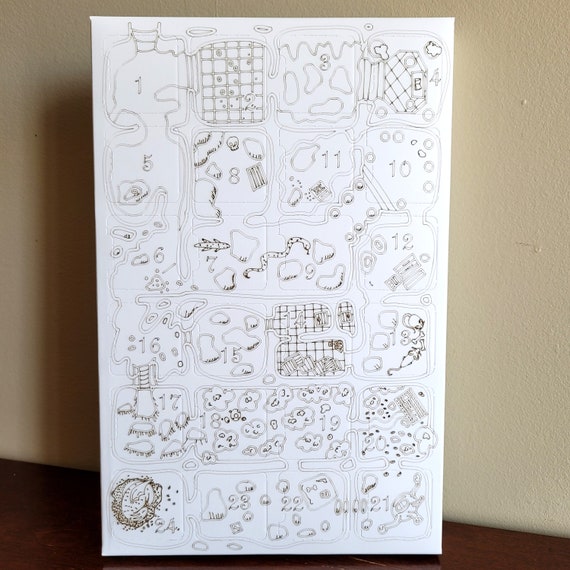 1 2 3 4
5 8 11 10
6 7 9 12
16 15 14 13
17 18 19 20
24 23 22 21